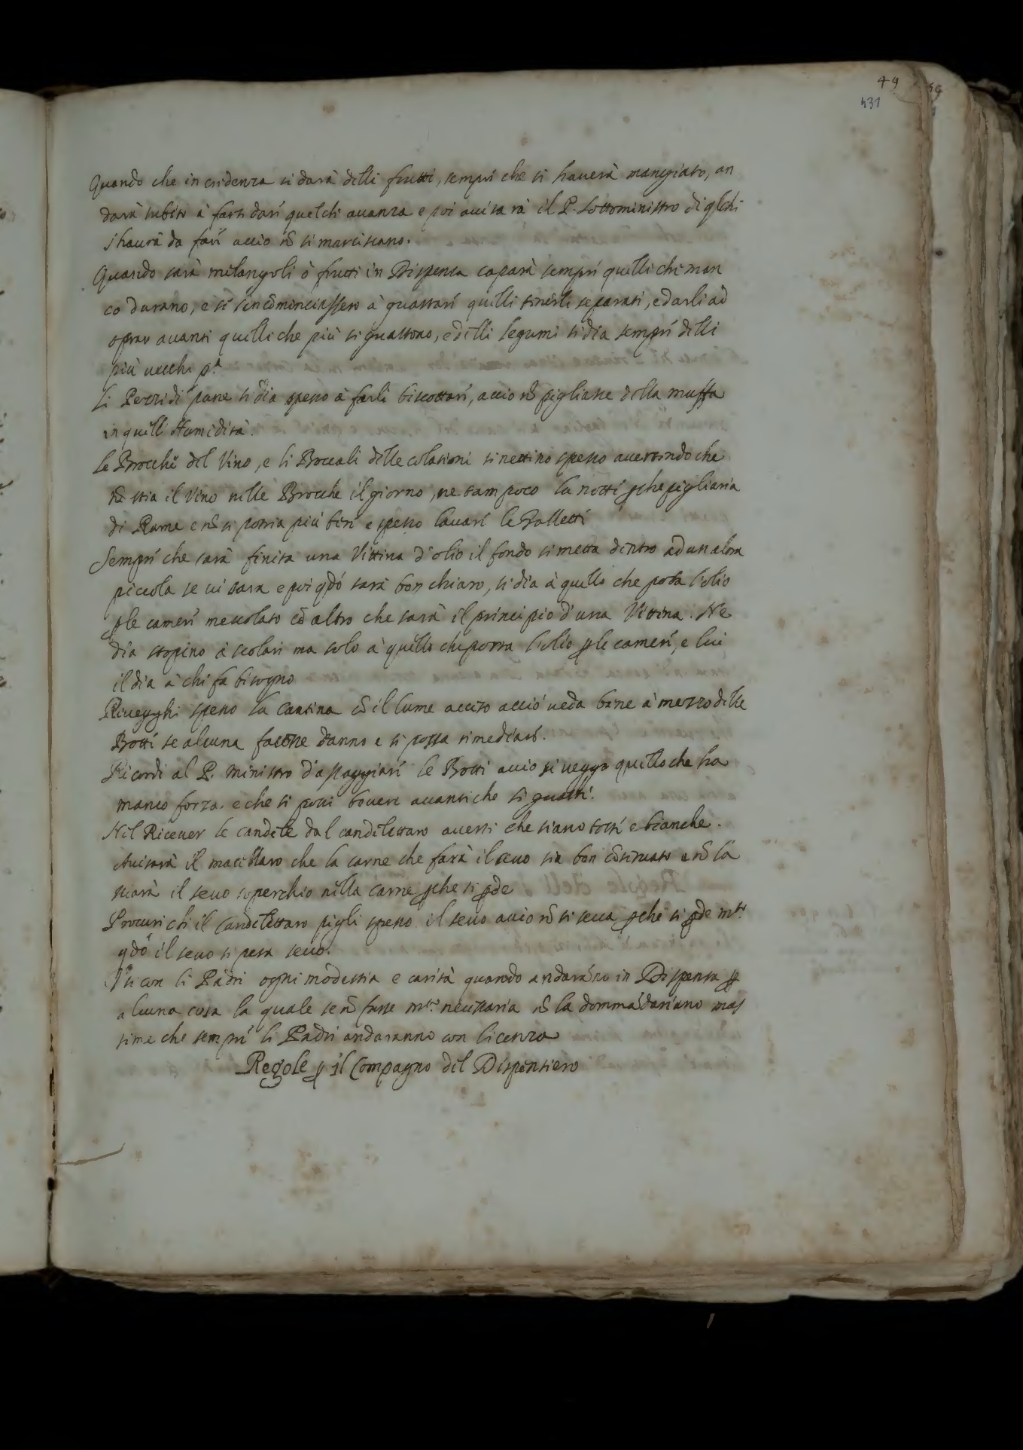 49
531
Quando che in credenza si darà delli frutti, sempre che si haverà mangiato, an
darà subito à farsi dare quel che avanza e poi avisarà il P. sottoministro di q̃llo
s'haurà da fare accio nõ si marciscano.
Quando sarà milangoli ò frutti in Dispensa caparà sempre quelli che man
co durano, e se s'incõminciassero à guastare quelli tenerli separati, e darli ad
oprar avanti quelli che più si guastono, e delli legumi si dia sempre delli
più vecchi pª
Li Pezzi di pane si dia spesso à farli biscottare, accio nõ pigliasse della muffa
in quelli Humidità.
Le Brocche del Vino, e li Boccali delle colationi si nettino spesso avertendo che
nõ stia il Vino nelle Brocche il giorno, ne tampoco la notte ꝑche pigliaria
di Rame e nõ si porria più bere e spesso lavare le Gallette
Sempre che sarà finita una Vittina d'olio il fondo si metta dentro ad un altra
piccola se vi sara e poi qdo sarà ben chiaro, si dia à quello che porta l'olio
ꝑ le camere mescolato cõ altro che sarà il principio d'una Vitina. Ne
dia stopino à scolari ma solo à quello che porta l'olio ꝑ le camere, e lui
il dia à chi fa bisogno
Rivegghi spesso la Cantina cõ il lume acceso acciò veda bene à mezzo delle
Botti se alcuna facesse danno e si possa rimediare.
Ricordi al P. Ministro d'assaggiare le Botti accio si vegga quello che ha
manco forza e che si possi bevere avanti che si guasti.
Nel Ricever le candele dal candelettaro averti che siano sotti e bianche.
Avisarà il macellaro che la carne che farà il sevo sia ben cõservato e nõ la
sciarà il sevo soperchio nella carne ꝑche si ꝑde
Procuri ch il Candelettaro pigli spesso il sevo accio nõ si secca ꝑche si ꝑde mto
qdo il sevo si pesa secco.
Usi con li Padri ogni modestia e carità quando andaranno in Dispensa ꝑ
alcuna cosa la quale se nõ fusse mto necessaria nõ la dommãdariano mas
sime che sempre li Padri andaranno con licenza
Regole ꝑ il Compagno del Dispensiero